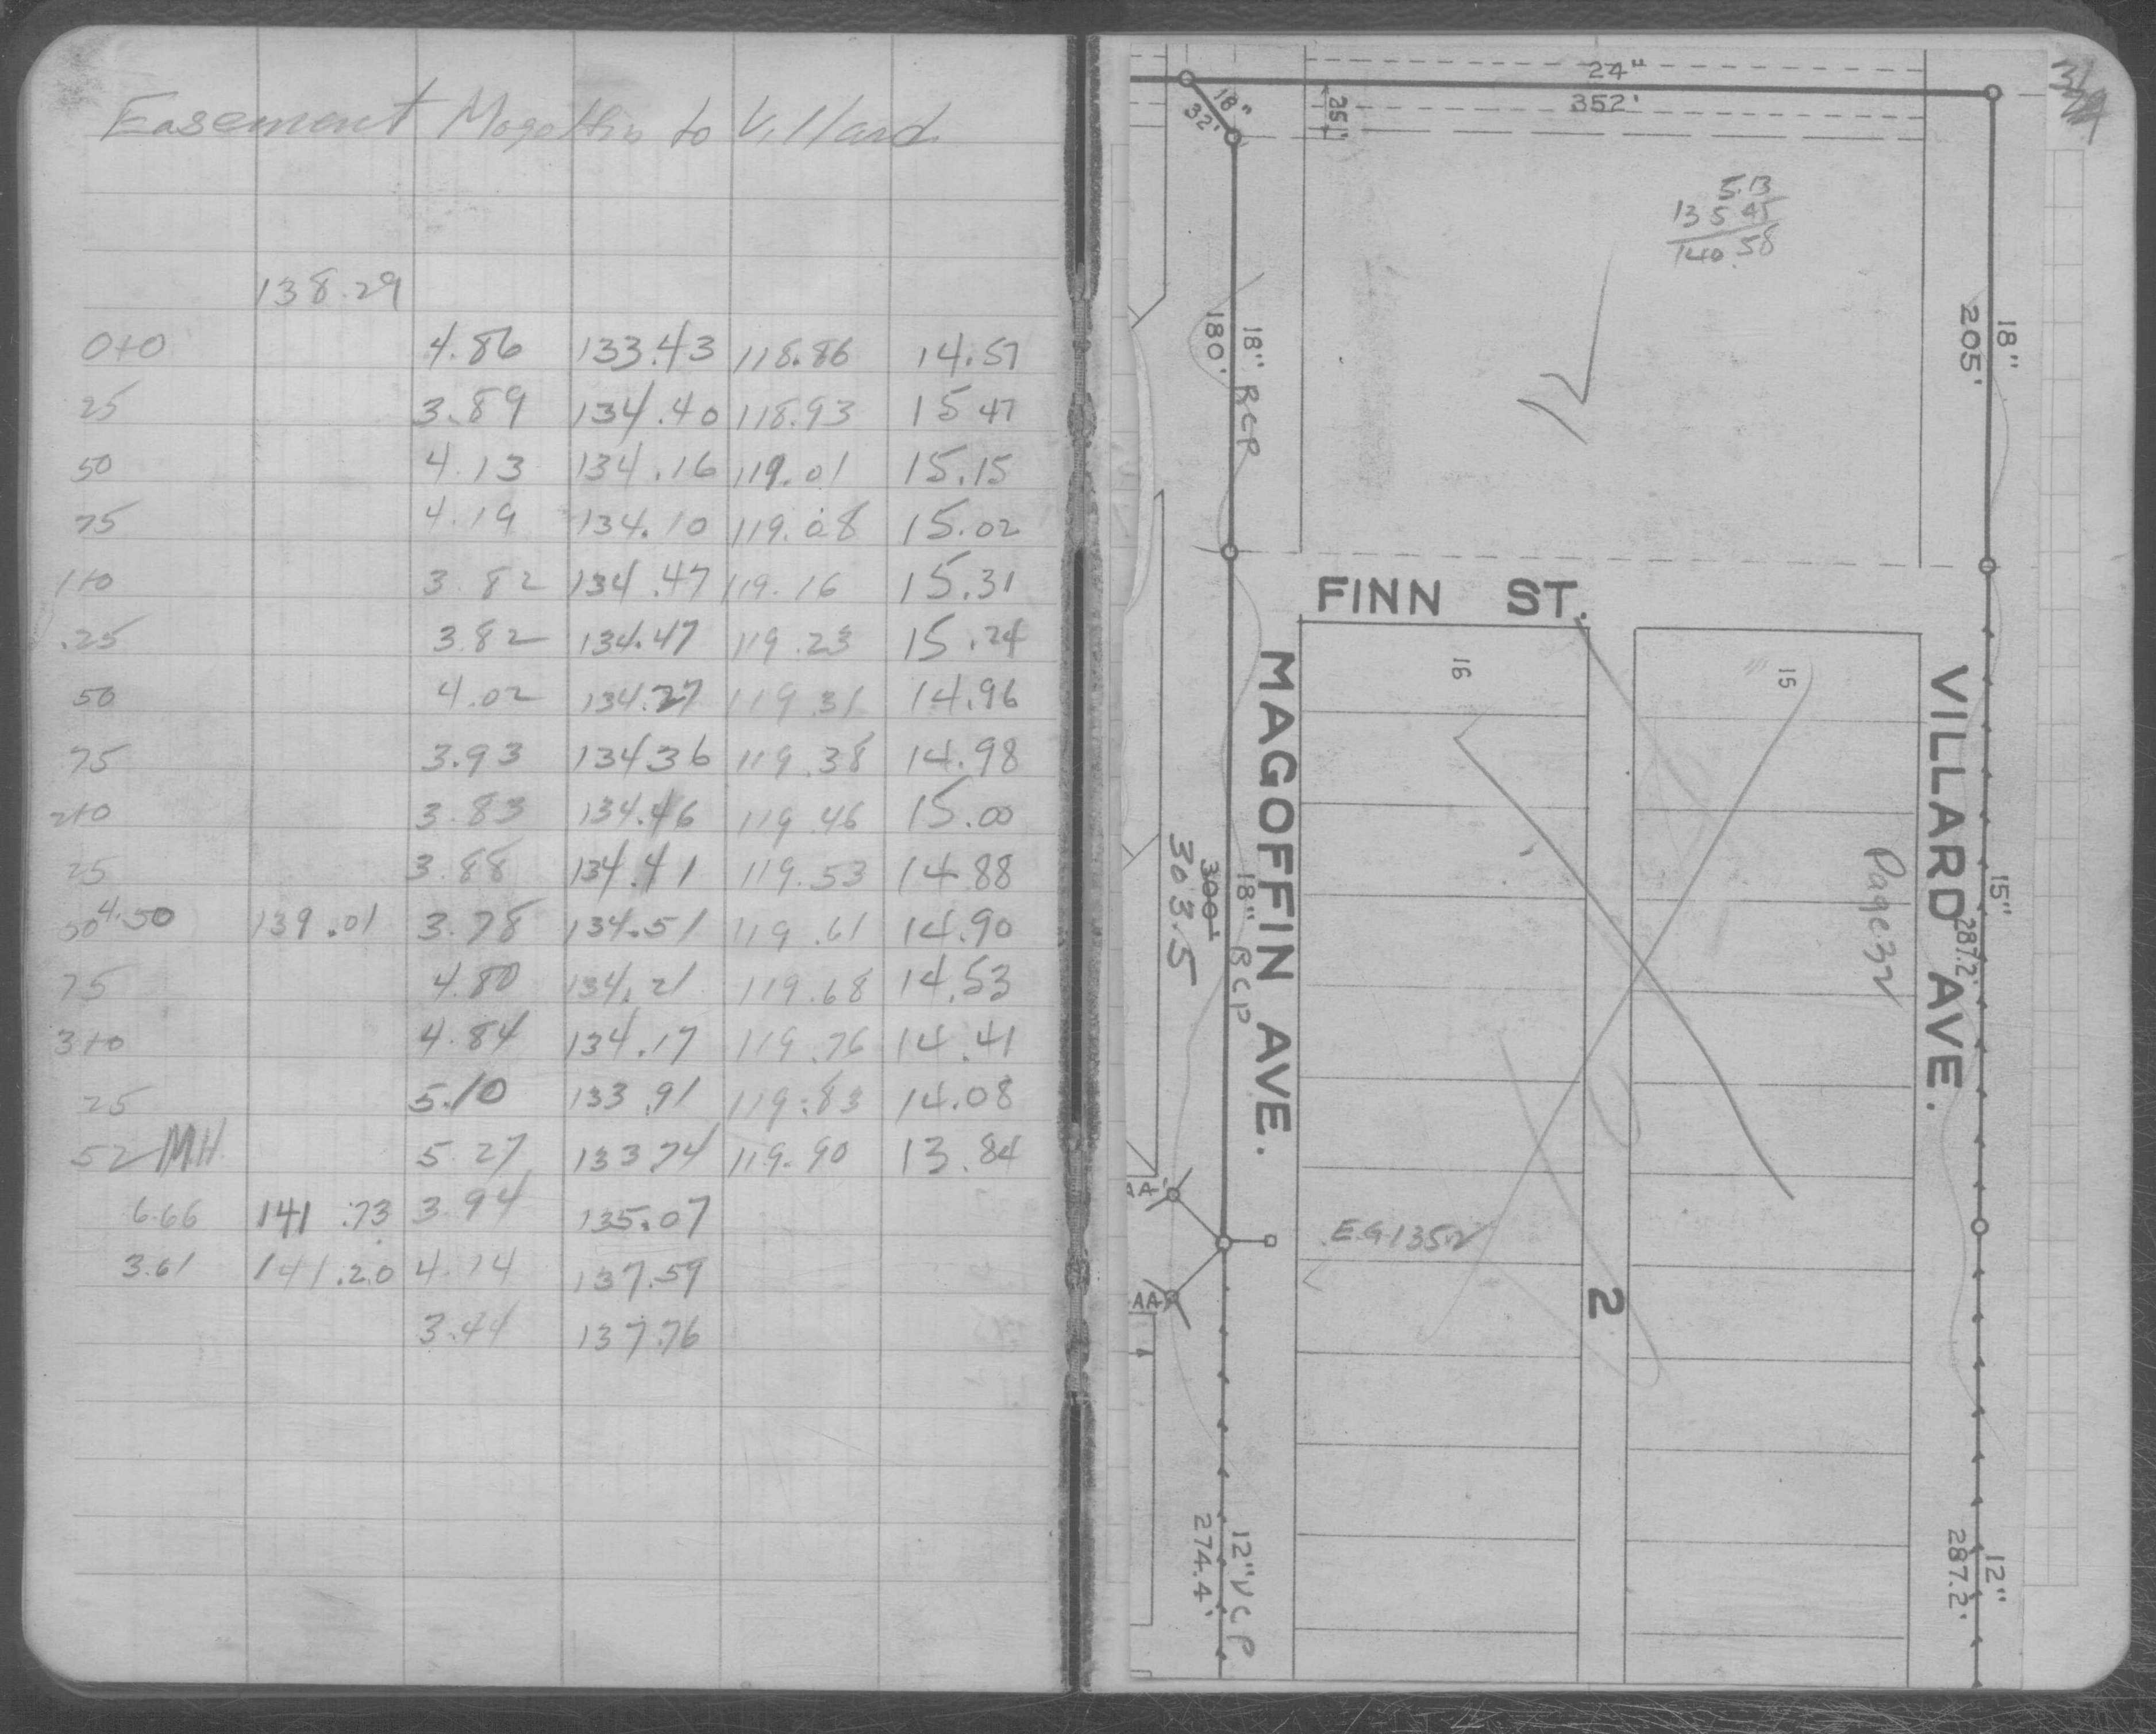 Easement Magoffin to Villard
138.29
0+0 4.86 133.43 118.86 14.57
25 3.89 134.40 118.93 15 47
50 4.13 134.16 119.01 15.15
75 4.19 134.10 119.08 15.02
1+0 3.82 134.47 119.16 15.31
.25 3.82 134.47 119.23 15.24
50 4.02 134.27 119.31 14.96
75 3.93 134 36 119.38 14.98
2+0 3.83 134.46 119.46 15.00
25 3.88 134.41 119.53 14 88
50 4.50 139.01 3.78 134.51 119.61 14.90
75 4.80 134.21 119.68 14.53
3+0 4.84 134.17 119.76 14.41
25 5.10 133.91 119.83 14.08
52 M.H. 5.27 133 74 119.90 13.84
6.66 141.73 3.94 135.07
3.61 141.20 4.14 137.59
3.44 137.76
24"
352'
18"
32'
25'
5.13
135 45
140.58
18" RCP
180'
18"
205'
FINN ST.
16
15
MAGOFFIN AVE.
VILLARD AVE.
Page 32
15"
287.2'
18" RCP
300'
303.5
AA'
E.G 135.2
AA
2
12" VCP
274.4'
12"
287.2'